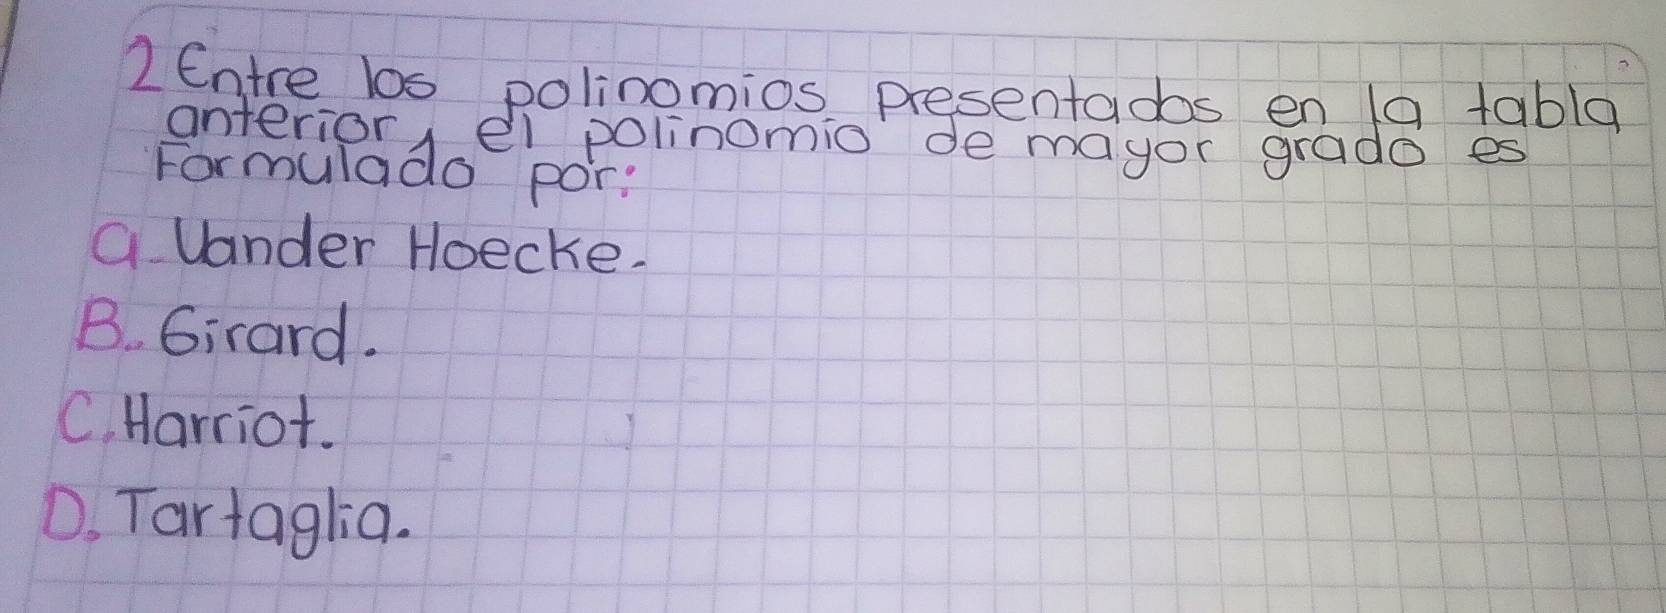 2 Entre los polinomios presentados en la tabla
anterior, el polinomio de mayor grado es
Formulado por:
a. Vander Hoecke.
B. Girard.
C. Harriot.
D. Tartaglia.